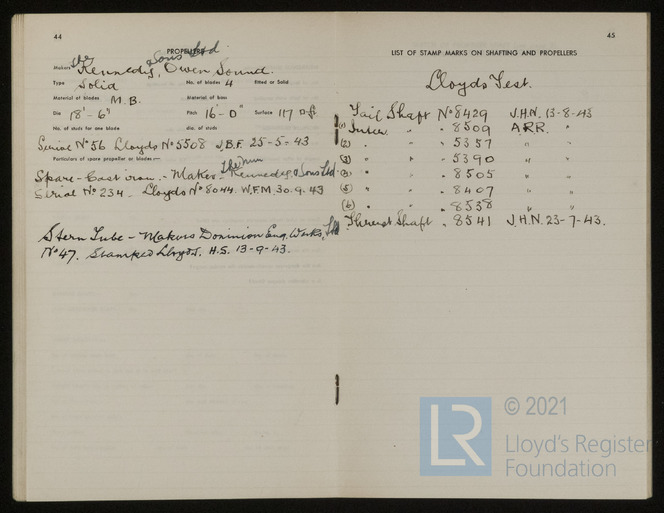 44
PROPELLERS
Makers The Kennedy & Sons Ltd. Owen Sound.
Type Solid No. of blades 4 Fitted or Solid
Material of blades M.B. Material of boss
Dia 18'-6" Pitch 16'-0" Surface 117 □ ft
No. of studs for one blade dia. of studs
Serial No 56 Lloyds No 5508 J.B.F. 25-5-43
Particulars of spare propeller or blades:—
Spare - Cast iron. - Makers - The Wm Kennedy & Sons Ltd
Serial No 234 - Lloyds No 8044. W.F.M. 30.9.43
Stern Tube - Makers Dominion Eng. Works, Ltd
No 47. Stamped Lloyds. H.S. 13-9-43.
45
LIST OF STAMP MARKS ON SHAFTING AND PROPELLERS
Lloyds Test.
Tail Shaft No 8429 J.H.N. 13-8-43
(1) Inter. " " 8509 A.R.R. "
(2) " " " 5357 " "
(3) " " " 5390 " "
(4) " " " 8505 " "
(5) " " " 8407 " "
(6) " " " 8538 " "
Thrust Shaft " 8541 J.H.N. 23-7-43.
LR
© 2021
Lloyd's Register
Foundation